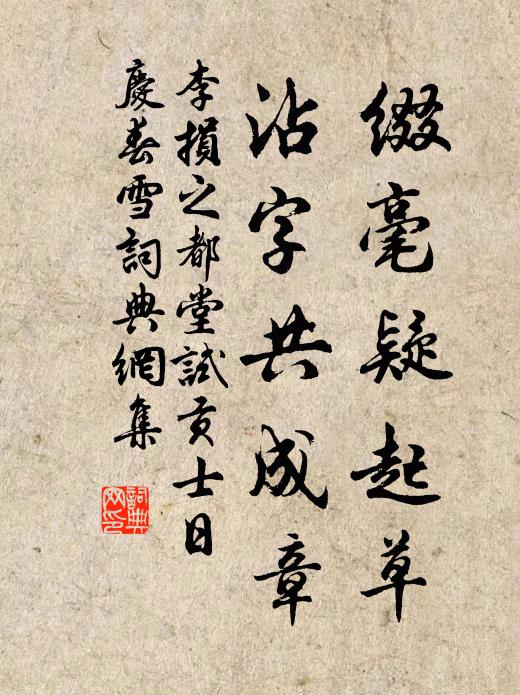 缀毫疑起草
沾字共成章
李損之都堂試貢士日
慶春雪詞典網集
詞典
网印